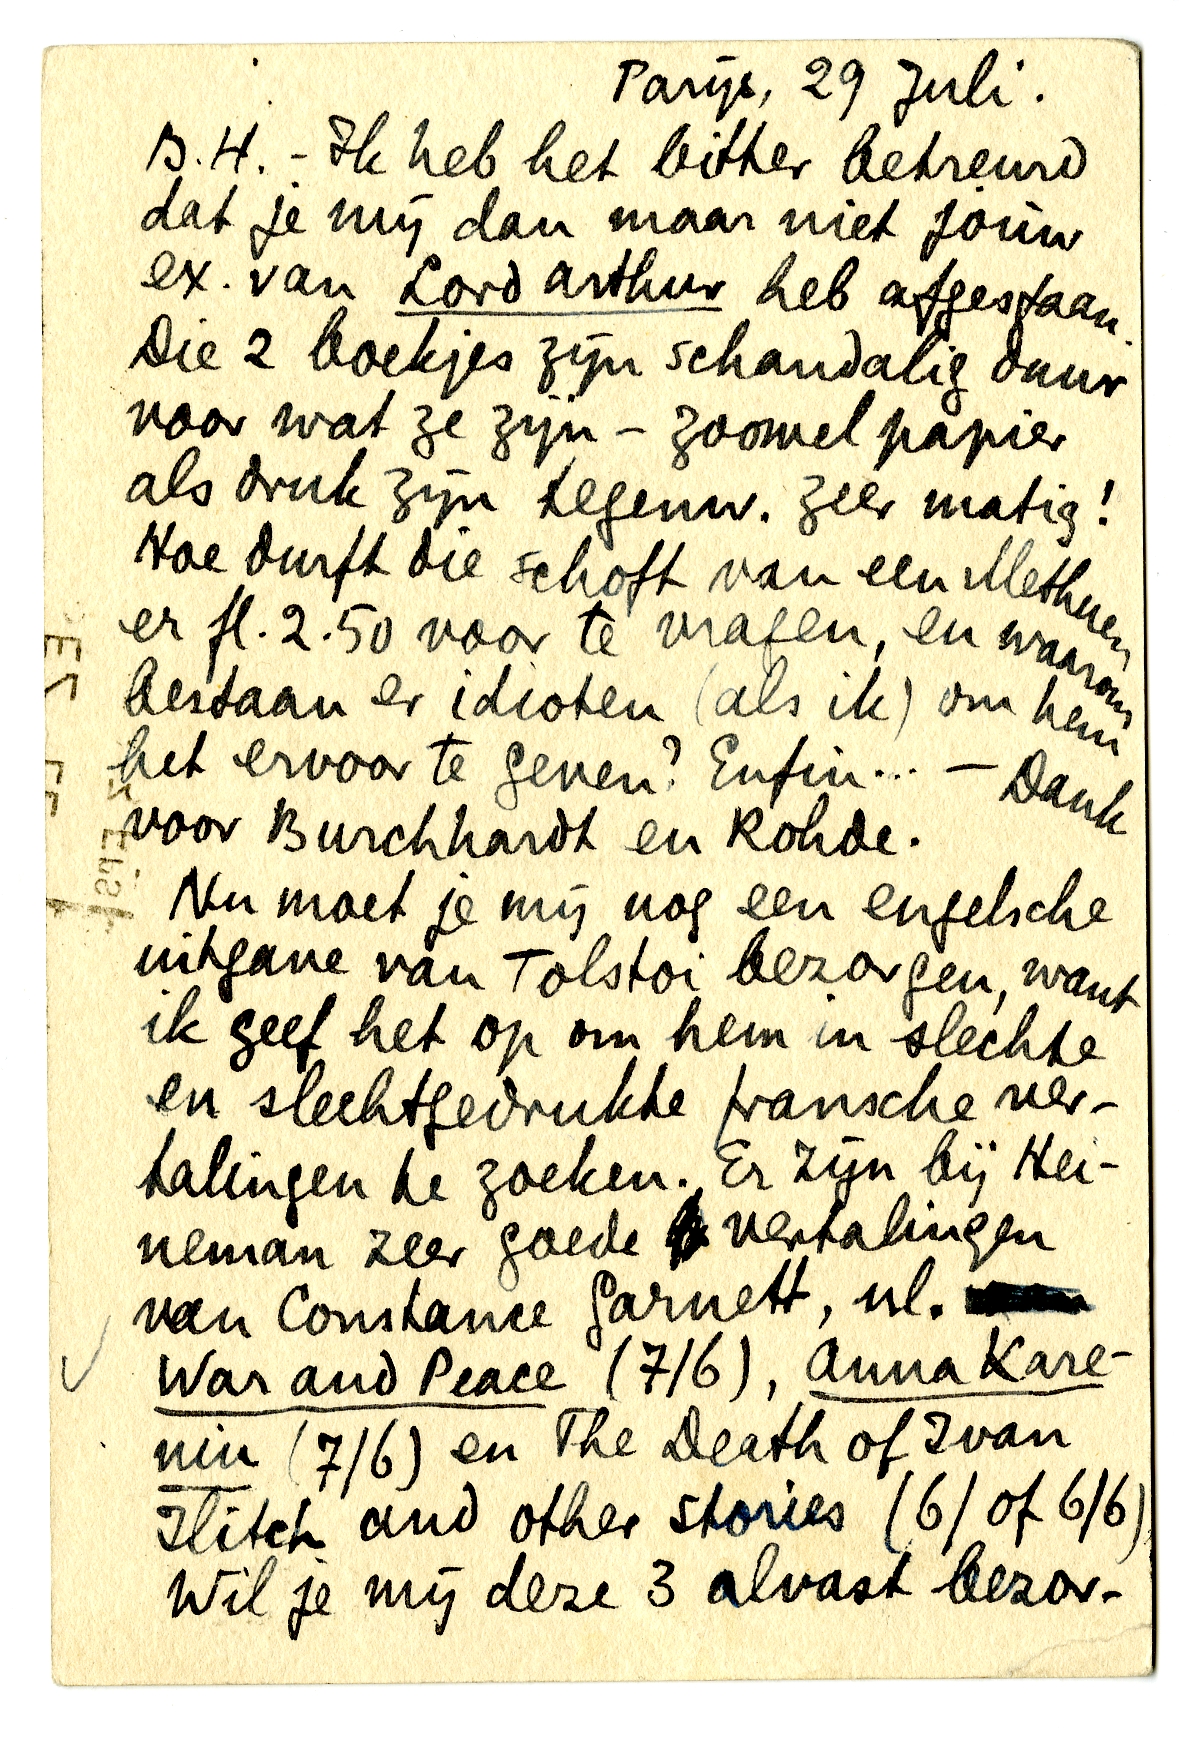 Parijs, 29 Juli.
B.H. - Ik heb het bitter betreurd
dat je mij dan maar niet jouw
ex. van Lord Arthur heb afgestaan.
Die 2 boekjes zijn schandalig duur
voor wat ze zijn - zoowel papier
als druk zijn tegenw. zeer matig!
Hoe durft die schoft van een Methuen
er fl. 2.50 voor te vragen, en waarom
bestaan er idioten (als ik) om hem
het ervoor te geven? Enfin... - Dank
voor Burckhardt en Rohde.
Nu moet je mij nog een engelsche
uitgave van Tolstoi bezorgen, want
ik geef het op om hem in slechte
en slechtgedrukte fransche ver-
talingen te zoeken. Er zijn bij Hei-
neman zeer goede vertalingen
van Constance Garnett, nl.
War and Peace (7/6), Anna Kare-
nin (7/6) en The Death of Ivan
Ilitch and other stories (6/ of 6/6)
Wil je mij deze 3 alvast bezor-